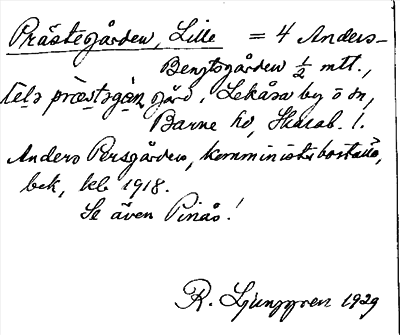 Prästegården, Lille = 4 Anders-
Bengtsgården ½ mtl.,
präs̲tsgån̲ gård. Lekåsa by o sn,
Barne hd, Skarab. l.
Anders Persgården, komministerboställe,
bek, leb 1918.
Se även Pinås!
R. Ljunggren 1929